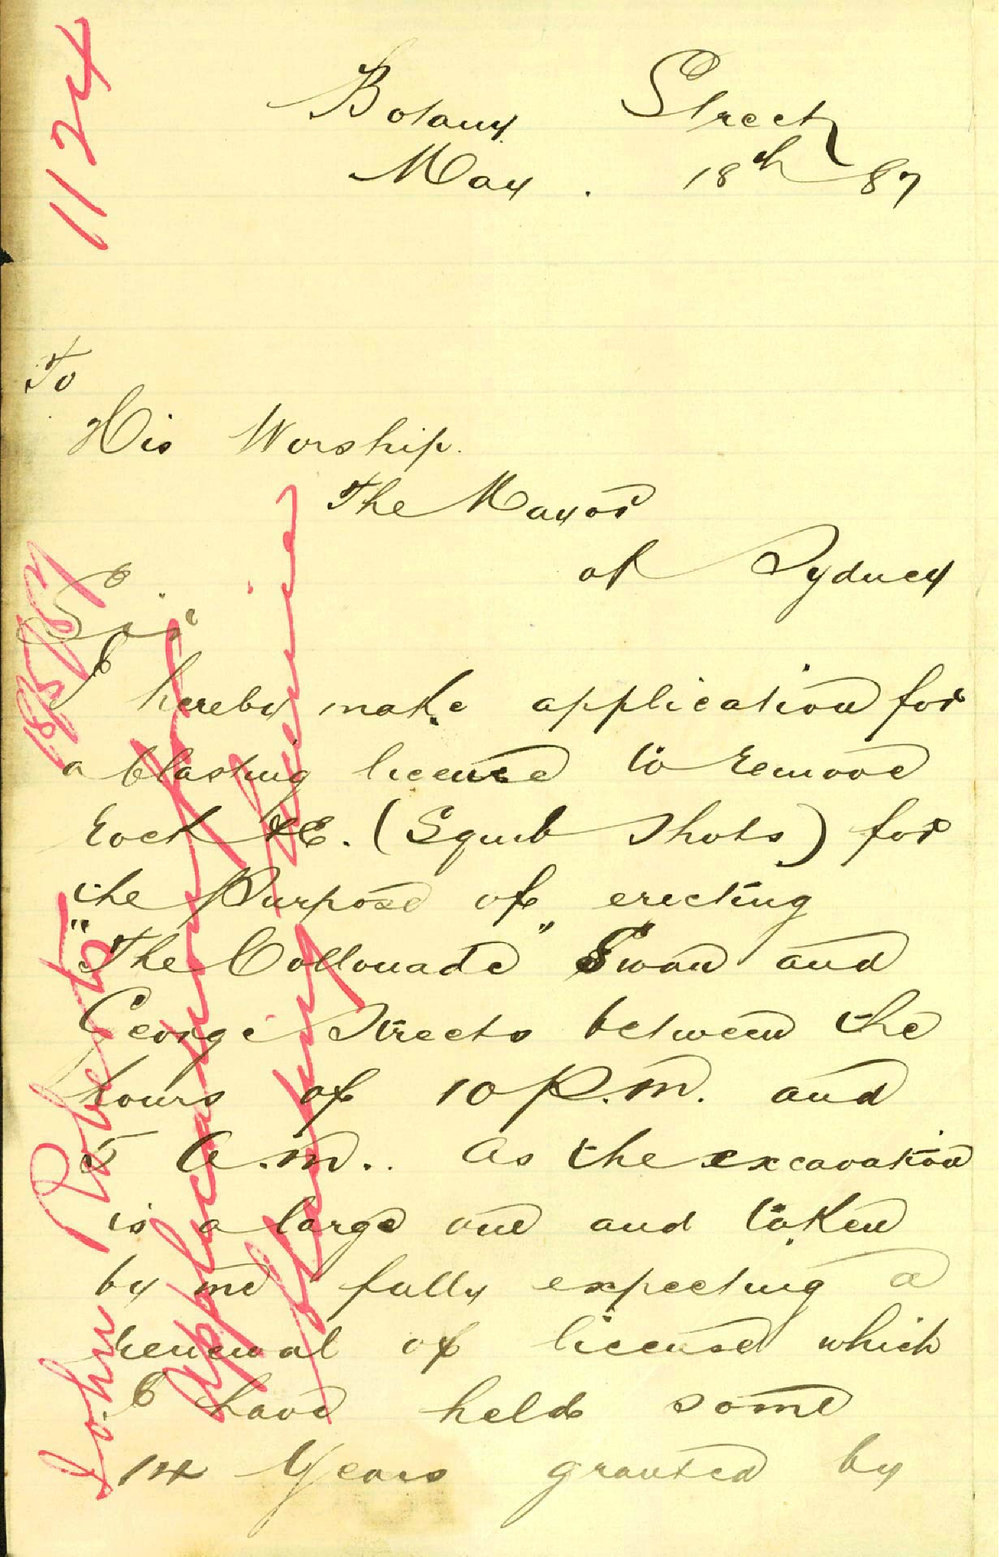 Botany Street
May. 18th 87
To
His Worship.
The Mayor
of Sydney
Sir
I hereby make application for
a blasting license to remove
rock &c. (Squib Shots) for
the Purpose of erecting
"The Collonade" Swan and
George Streets between the
hours of 10 P.m. and
5 a.m.. as the excavation
is a large one and taken
by me fully expecting a
renewal of license which
I have held some
14 Years granted by
1124
18/5/87
John Roberts
Application for
blasting license